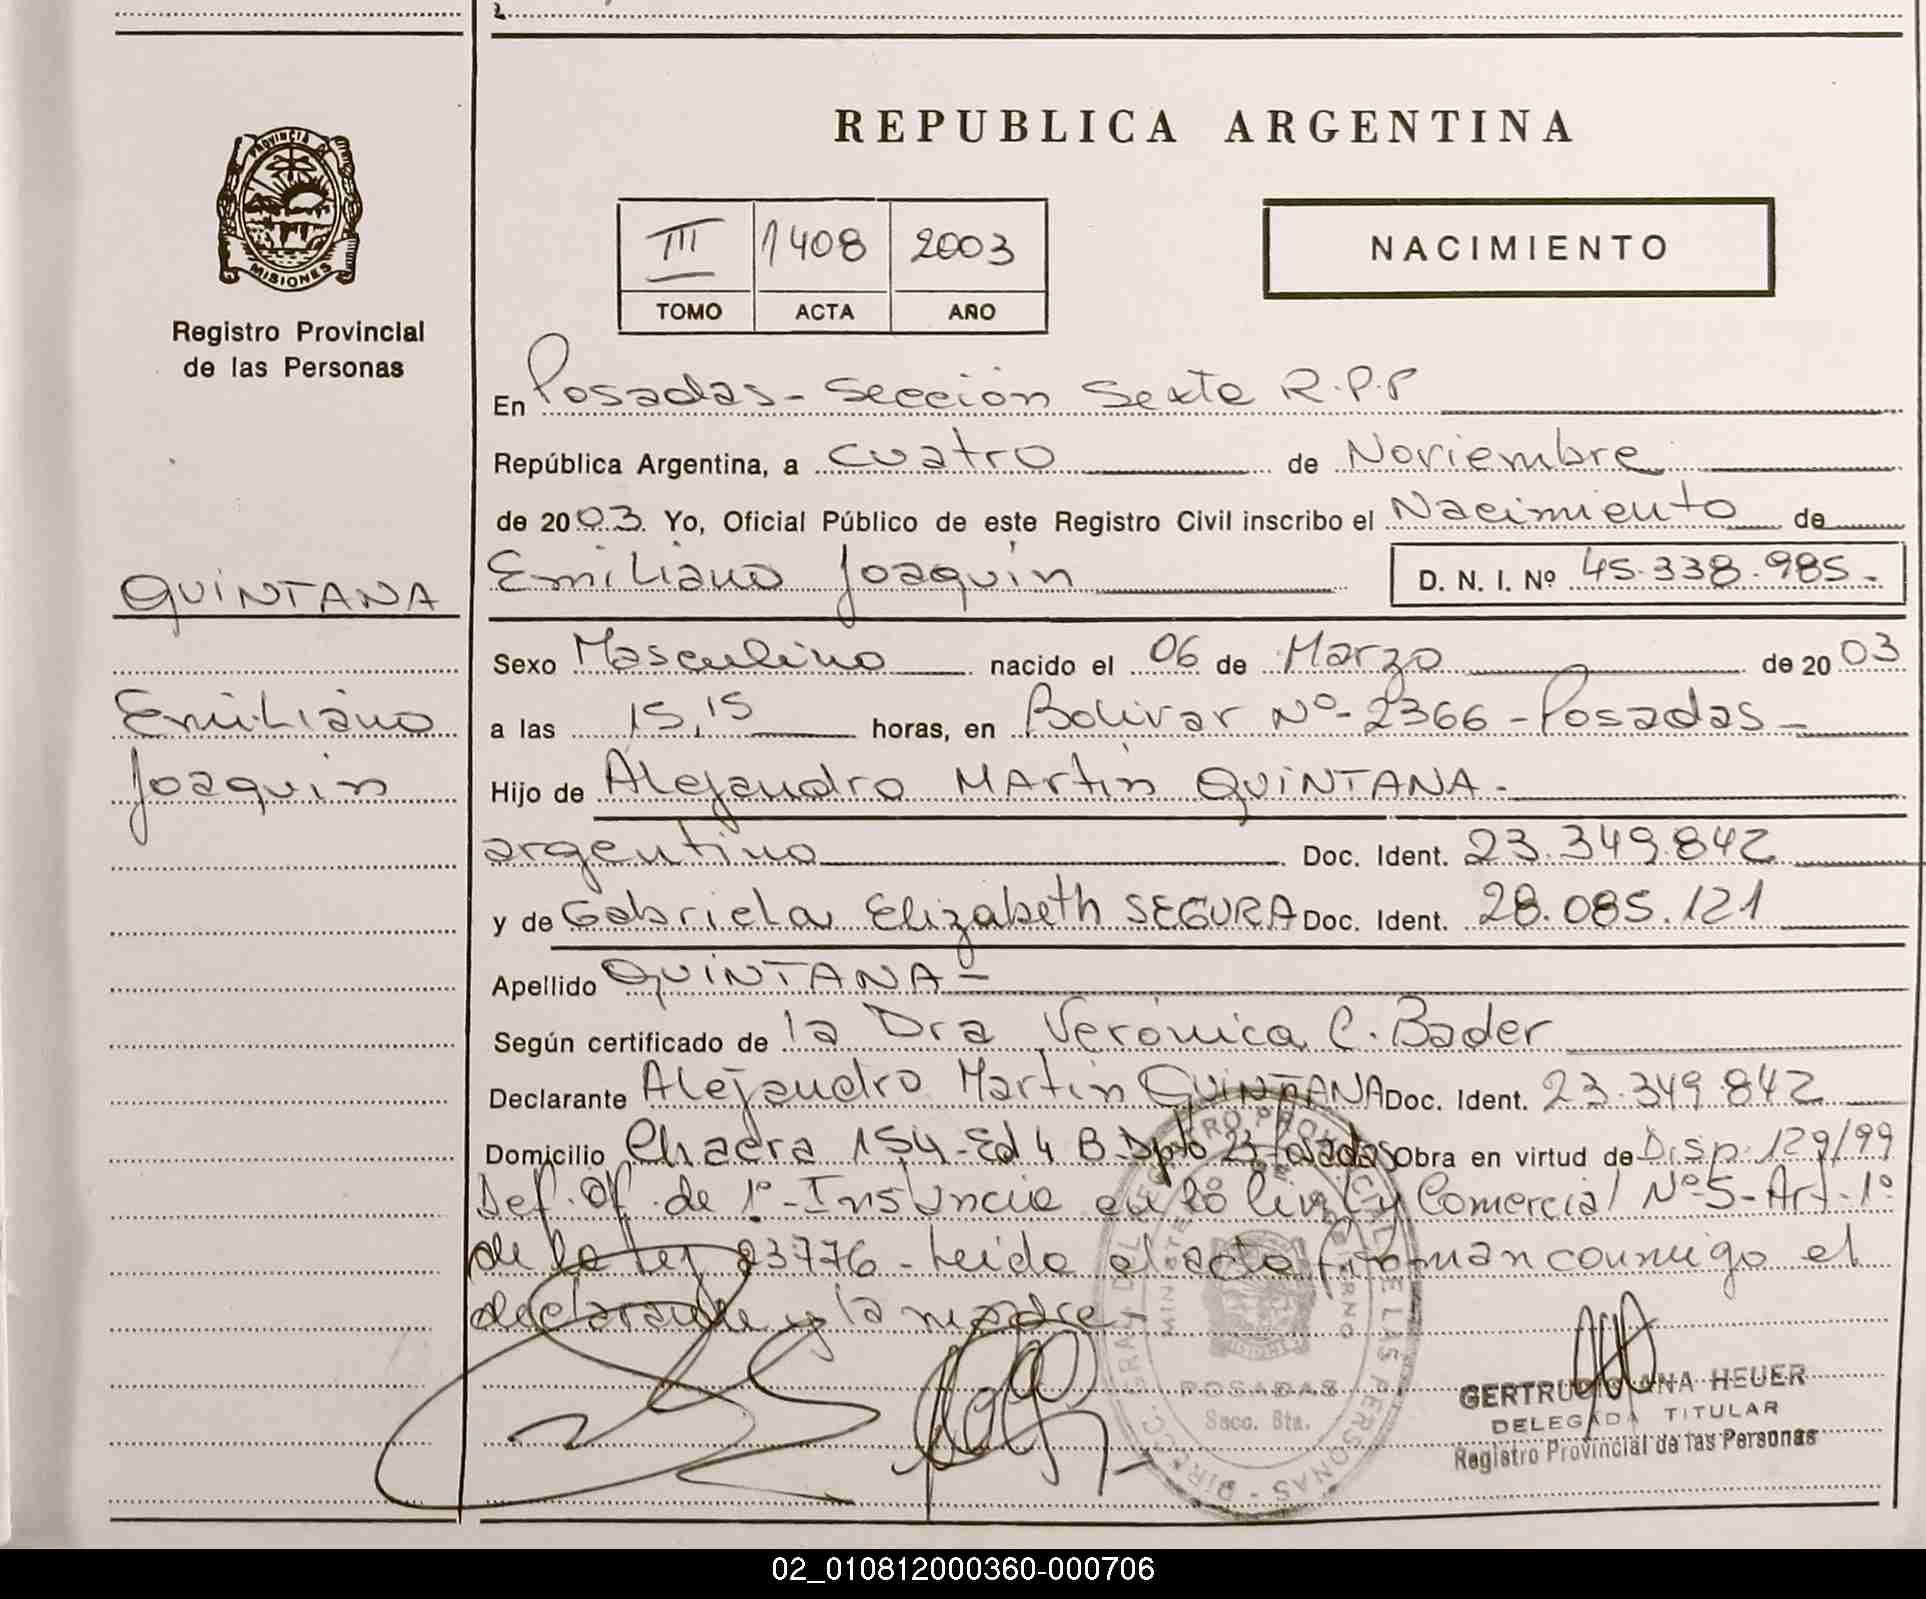 REPUBLICA ARGENTINA
PROVINCIA D
MISIONES
Registro Provincial
de las Personas
III 1408 2003
TOMO ACTA AÑO
NACIMIENTO
En Posadas - Sección Sexta R.P.P
República Argentina, a cuatro de Noviembre
de 2003. Yo, Oficial Público de este Registro Civil inscribo el Nacimiento de
Emiliano Joaquin D. N. I. Nº 45.338.985.-
QUINTANA
Emiliano
Joaquin
Sexo Masculino nacido el 06 de Marzo de 2003
a las 15,15 horas, en Bolivar Nº- 2366 - Posadas -
Hijo de Alejandro MArtin QUINTANA.-
argentino Doc. Ident. 23.349.842
y de Gabriela Elizabeth SEGURA Doc. Ident. 28.085.121
Apellido QUINTANA -
Según certificado de la Dra Verónica C. Bader
Declarante Alejandro Martin QUINTANA Doc. Ident. 23.349.842
Domicilio Chacra 154 - Ed 4 B. Dpto 23 Posadas Obra en virtud de Disp. 129/99
Def. Of. de 1º - Instancia en lo Civil y Comercial Nº 5 - Art. 1º
de la Ley 23776 - Leida el acta firman conmigo el
declarante y la madre -
POSADAS
Secc. 6ta.
GERTRUDIS ANA HEUER
DELEGADA TITULAR
Registro Provincial de las Personas
02_010812000360-000706